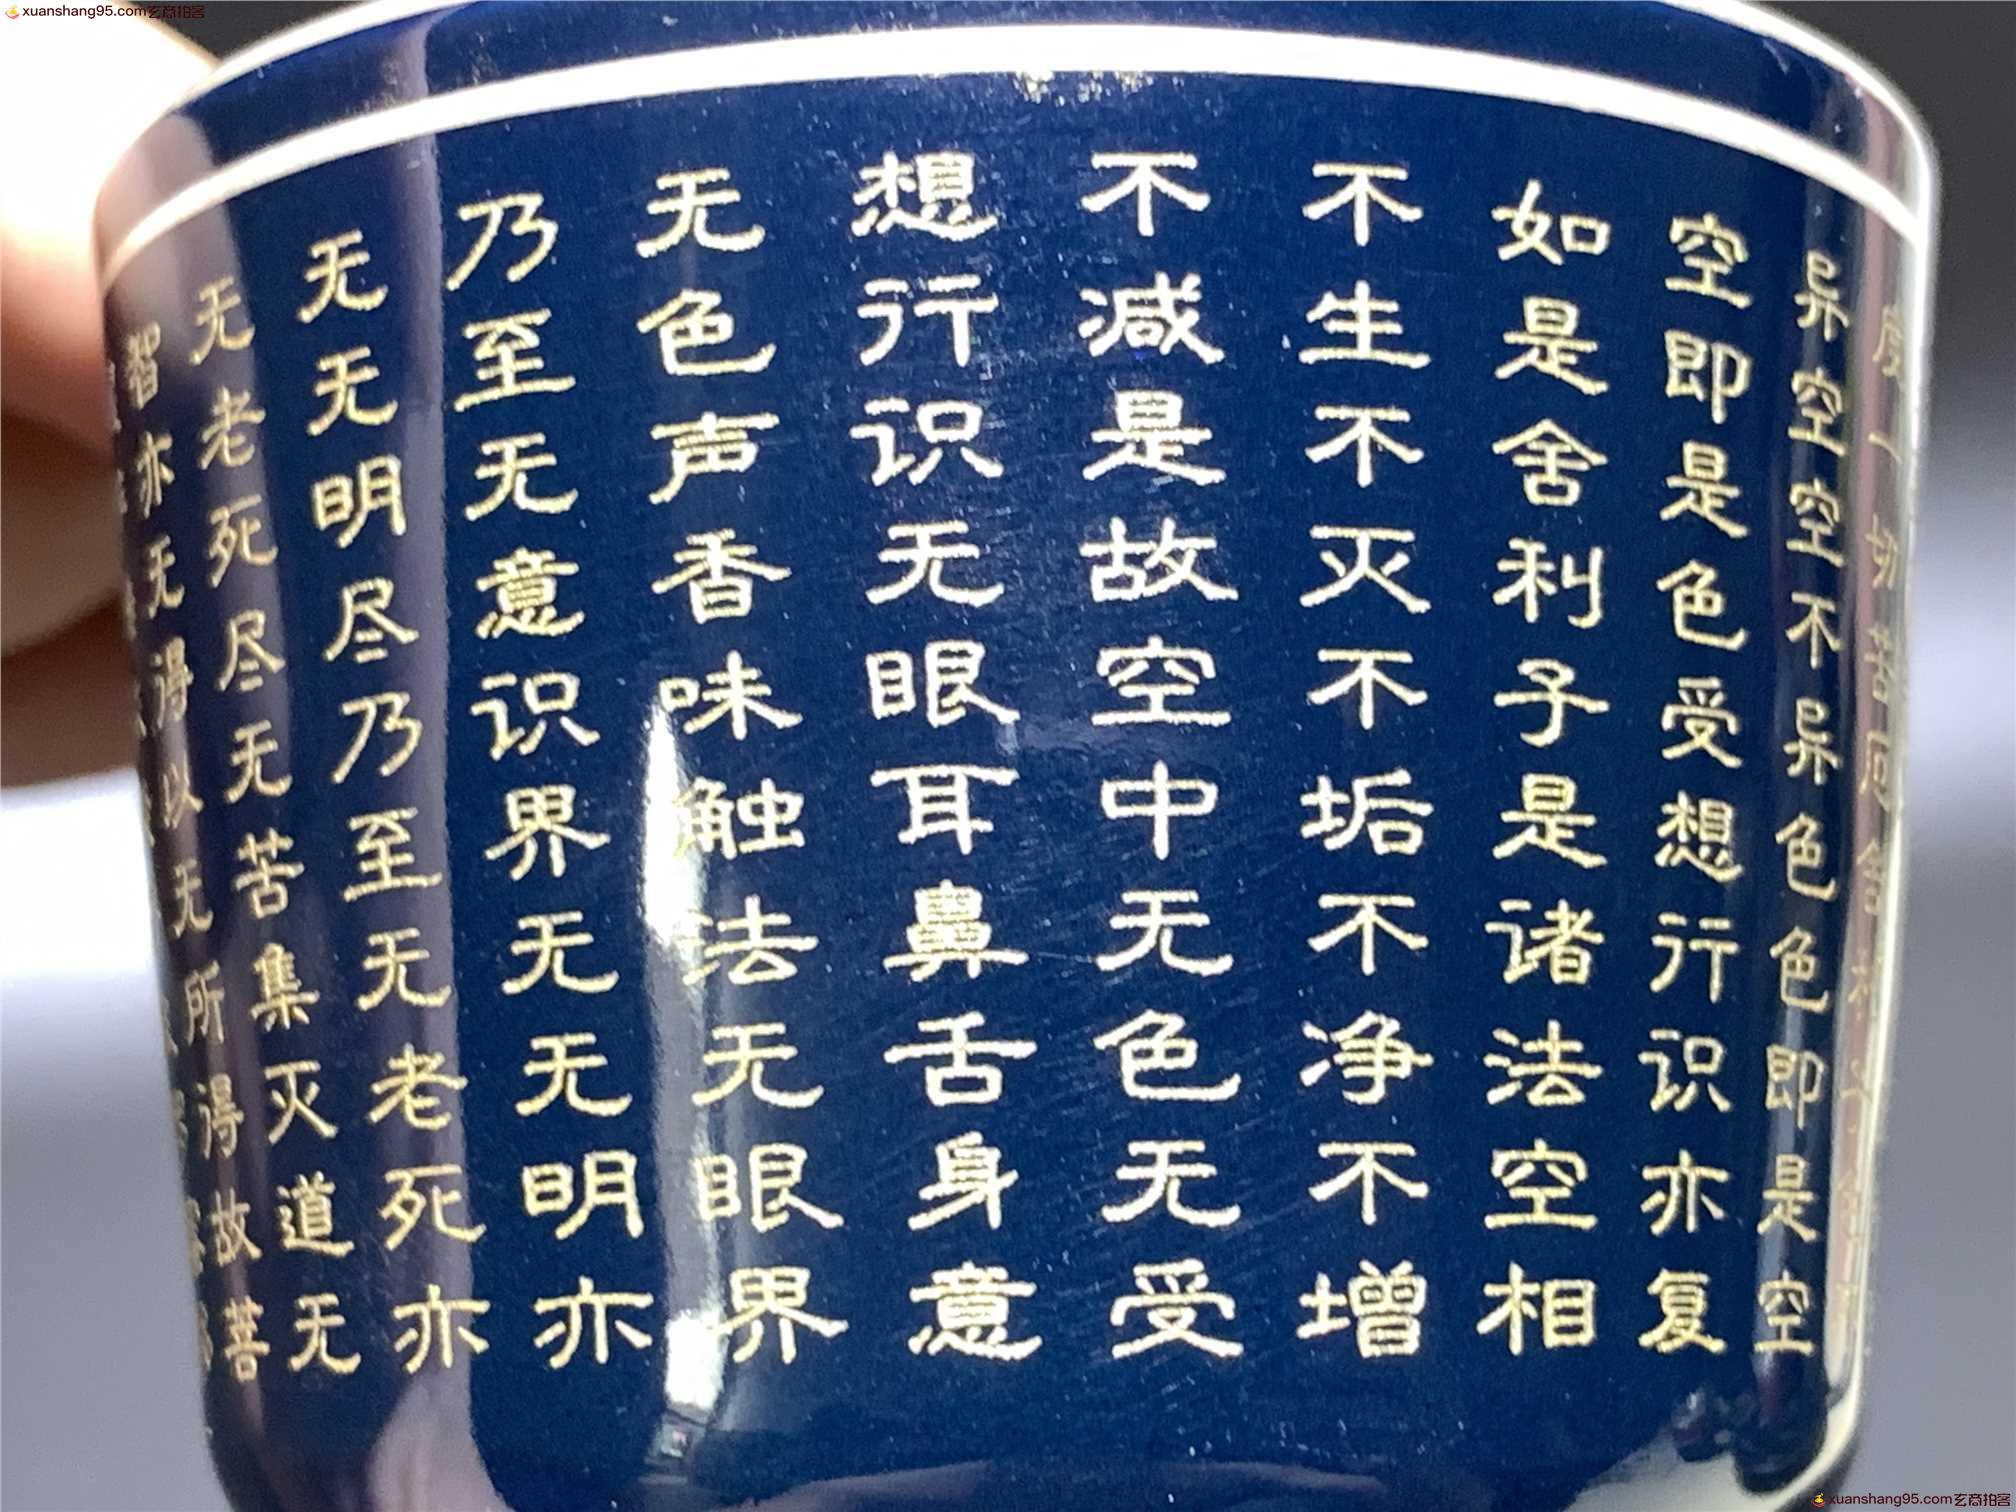 xuanshang95.com玄商拍客
度一切苦厄舍利子
异空空不异色色即是空
空即是色受想行识亦复
如是舍利子是诸法空相
不生不灭不垢不净不增
不减是故空中无色无受
想行识无眼耳鼻舌身意
无色声香味触法无眼界
乃至无意识界无无明亦
无无明尽乃至无老死亦
无老死尽无苦集灭道无
智亦无得以无所得故菩
xuanshang95.com玄商拍客